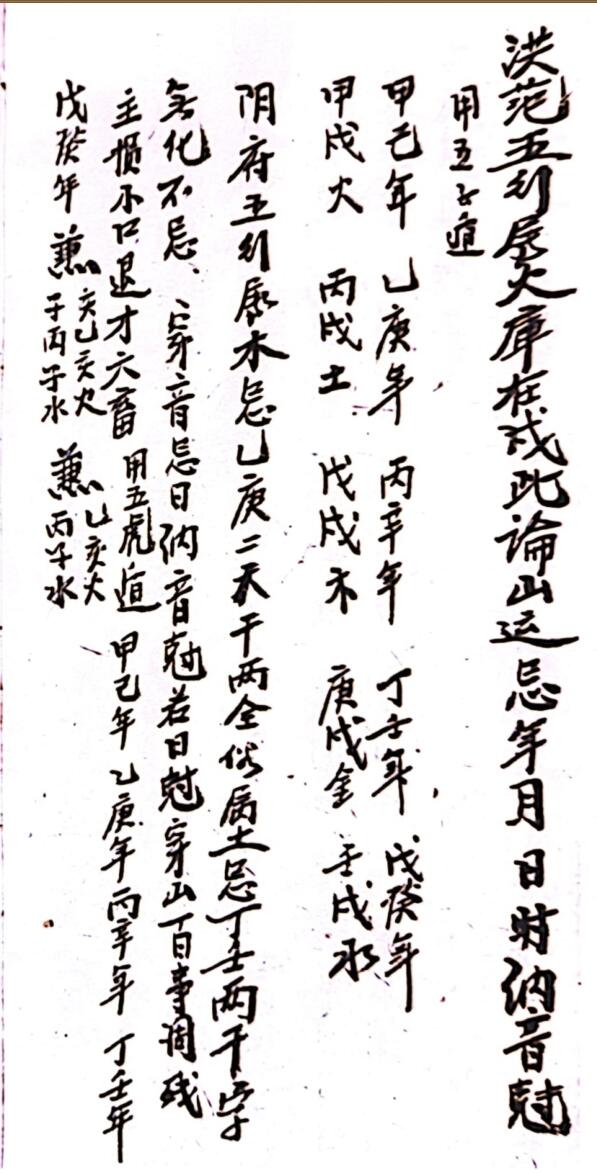 洪范五行属火庫在戌此論山运忌年月日时纳音尅
用五子遁
甲己年 乙庚年 丙辛年 丁壬年 戊癸年
甲戌火 丙戌土 戊戌木 庚戌金 壬戌水
阴府五行属木忌乙庚二天干两全俗属土忌丁壬两干字
無化不忌、穿音忌日纳音尅若日尅穿山百事凋残
主损小口退才六畜 用五虎遁 甲己年 乙庚年 丙辛年 丁壬年
戊癸年 兼亥己亥火 兼己亥火
子丙子水 丙子水